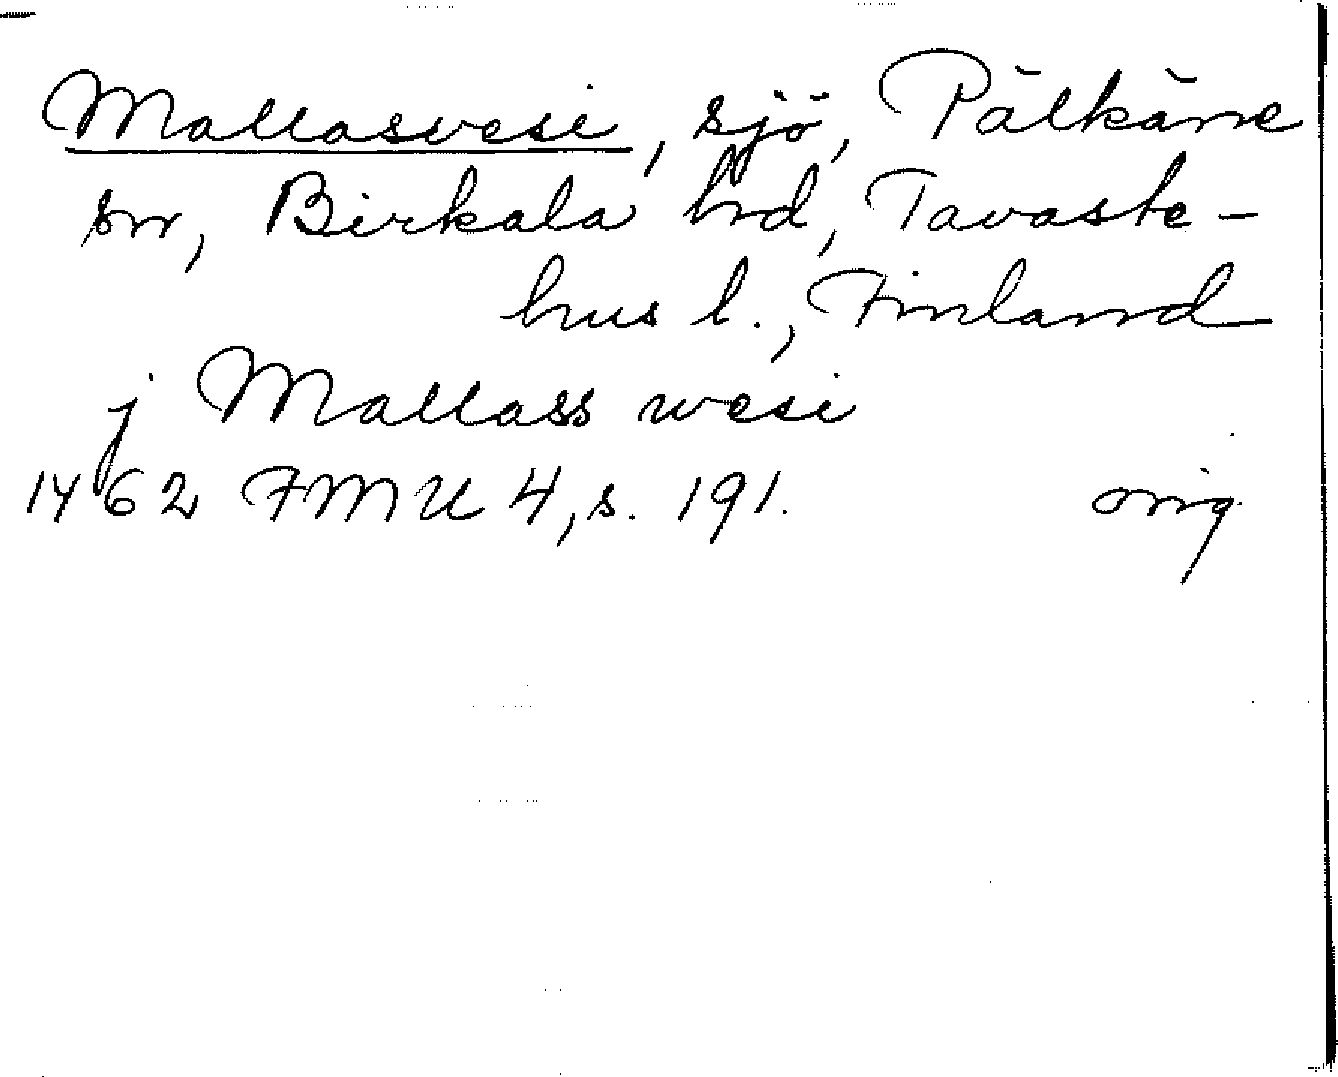 Mallasvesi, sjö, Pälkäne
sn, Birkala hd, Tavaste-
hus l., Finland
j Mallass wesi
1462 FMU 4, s. 191. orig.